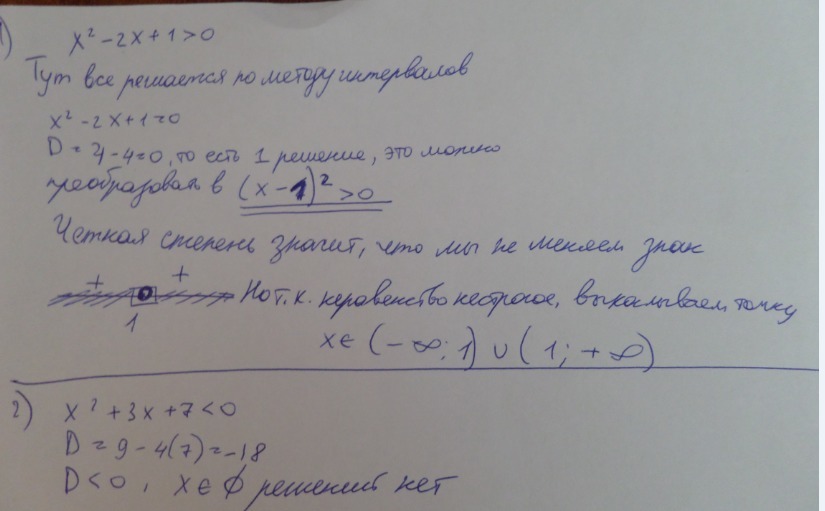 1) x² - 2x + 1 > 0
Тут все решается по методу интервалов
x² - 2x + 1 = 0
D = 4 - 4 = 0, то есть 1 решение, это можно
преобразовать в (x - 1)² > 0
Четная степень значит, что мы не меняем знак
+ + Но т.к. неравенство нестрогое, выкалываем точку
1
x ∈ (-∞; 1) ∪ (1; +∞)
2) x² + 3x + 7 < 0
D = 9 - 4(7) = -18
D < 0, x ∈ ∅ решений нет